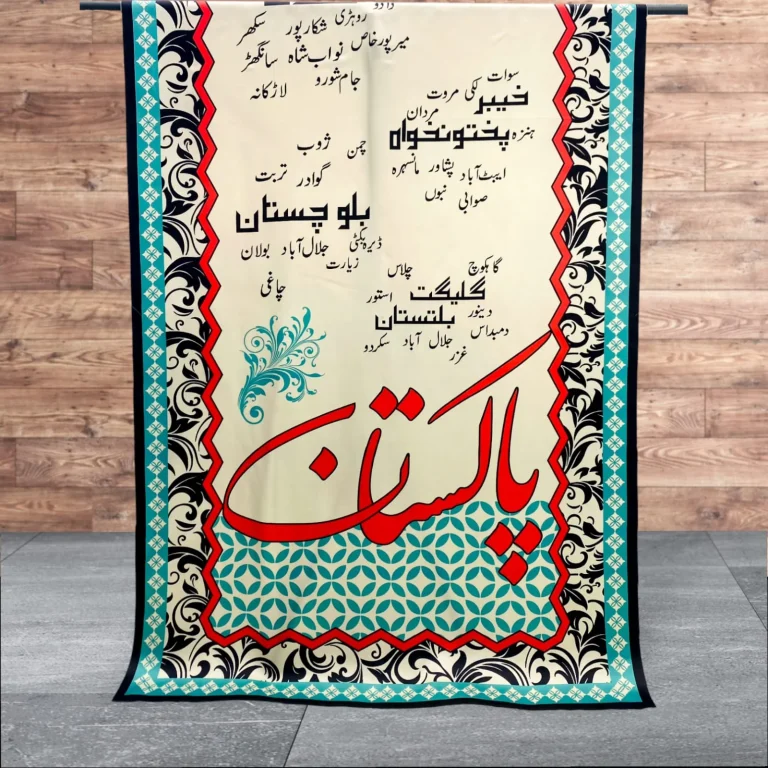 دادو
روہڑی
شکارپور
سکھر
میرپورخاص
نواب شاہ
سانگھڑ
جام شورو
لاڑکانہ
سوات
لکی مروت
خیبر
مردان
ہنزہ
پختونخواہ
ایبٹ آباد
پشاور
مانسہرہ
صوابی
چمن
ژوب
گوادر
تربت
بلوچستان
ڈیرہ بگٹی
جلال آباد
بولان
زیارت
چاغی
گاہکوچ
چلاس
گلیگت
استور
دینور
بلتستان
دمبداس
جلال آباد
سکردو
غزر
پاکستان